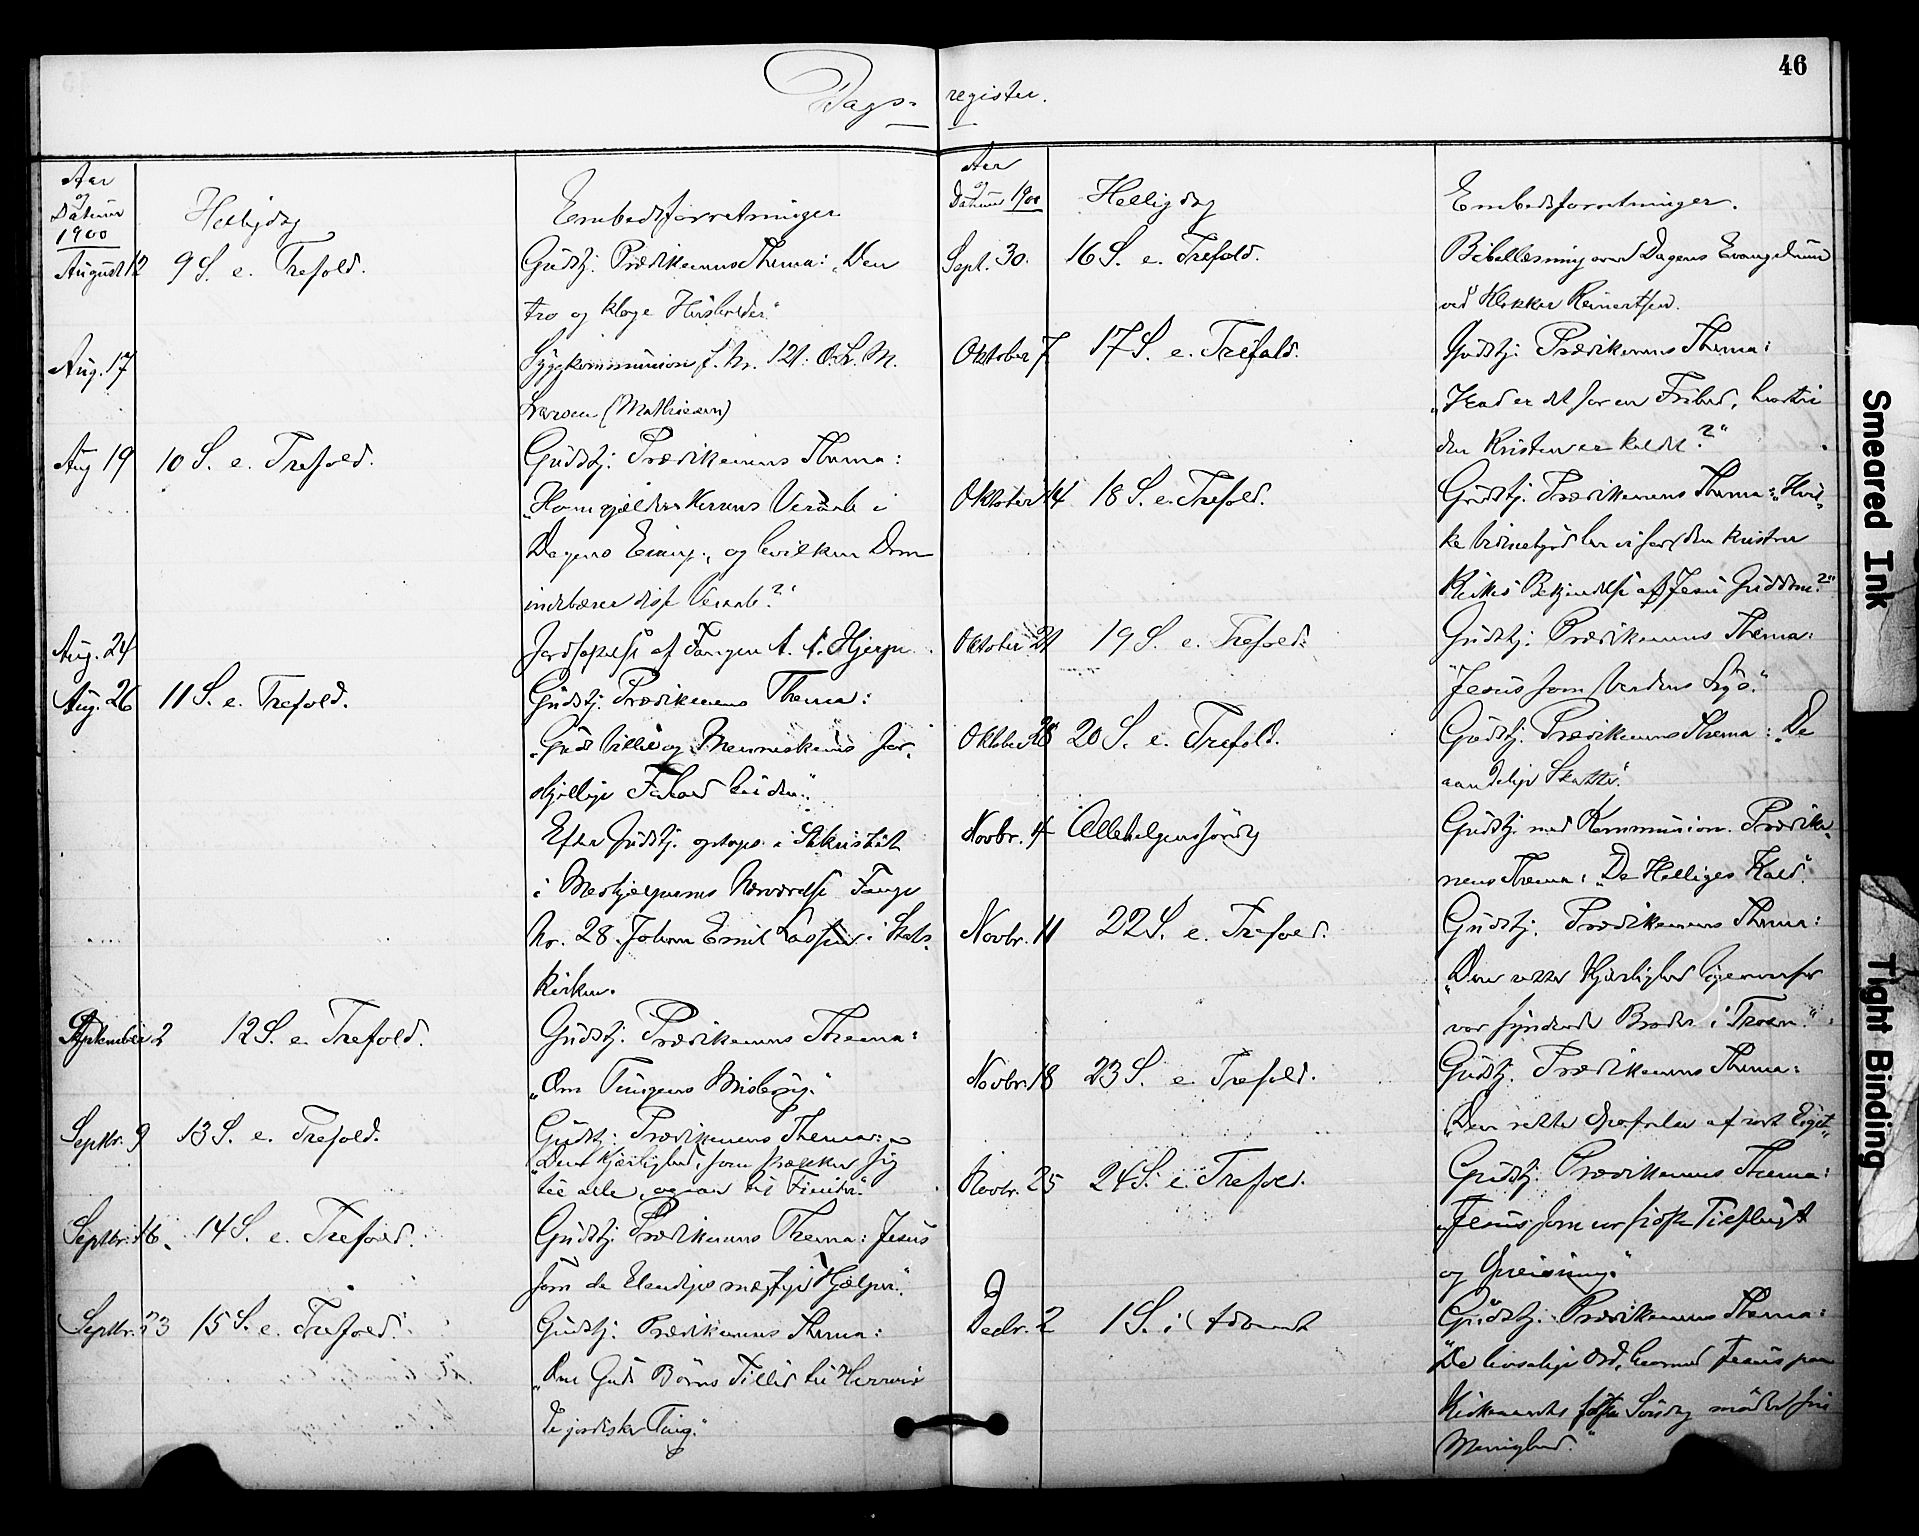 46
Dags-register.
Aar
og
Datum
1900
Helligdag
Embedsforretninger
August 12 9 S. e. Trefold. Gudstj. Prædikenens Thema: „Den
tro og kloge Husholder."
Aug. 17 Sygekommunion f. Nr. 121. O. L. M.
Larsen (Mathiesen)
Aug 19 10 S. e. Trefold. Gudstj. Prædikenens Thema:
„Hvem gjælder Herrens Veraab i
Dagens Evang., og hvilken Dom
indebærer disse Veraab?"
Aug. 24 Jordfæstelse af Fangen A. A. Hjerpe.
Aug. 26 11 S. e. Trefold. Gudstj. Prædikenens Thema:
„Guds Villie og Menneskenes for-
skjellige Forhold til den."
Efter Gudstj. optoges i Sakristiet
i Medhjelpernes Nærværelse Fange
Nr. 28. Johan Emil i Stats-
kirken.
September 2 12 S. e. Trefold. Gudstj. Prædikenens Thema:
„Om Tungens Misbrug."
Septbr. 9 13 S. e. Trefold. Gudstj. Prædikenens Thema:
„Den Kjærlighed, som strækker sig
til alle, ogsaa til Fiender."
Septbr. 16. 14 S. e. Trefold. Gudstj. Prædikenens Thema: Jesus
som de Elendiges mægtige Hjælper."
Septbr. 23 15 S. e. Trefold. Gudstj. Prædikenens Thema:
„Om Guds Børns Tillid til Herren i
de jordiske Ting."
Aar
og
Datum 1900
Helligdag
Embedsforretninger.
Sept. 30. 16 S. e. Trefold. Bibellæsning over Dagens Evangelium
ved Klokker Reinertsen.
Oktober 7 17 S. e. Trefold. Gudstj. Prædikenens Thema:
„Hvad er det for en Frihed, hvortil
den Kristen er kaldet?"
Oktober 14 18 S. e. Trefold. Gudstj. Prædikenens Thema: „Hvil-
ke Vidnesbyrd har vi for den kristne
Kirkes Bekjendelse af Jesu Guddom?"
Oktober 21 19 S. e. Trefold. Gudstj. Prædikenens Thema:
"Jesus som Verdens Lys."
Oktober 28 20 S. e. Trefold. Gudstj. Prædikenens Thema: „De
aandelige Skatte."
Novbr. 4 Allehelgenssøndag Gudstj. med Kommunion. Prædike-
nens Thema: „De Helliges Kald."
Novbr. 11 22 S. e. Trefold. Gudstj. Prædikenens Thema:
„Den rette Kjærlighed ligeoverfor
vor syndende Broder i Troen."
Novbr. 18 23 S. e. Trefold. Gudstj. Prædikenens Thema:
„Den rette Opfatelse af vort Liget"
Novbr. 25 24 S. e. Trefold. Gudstj. Prædikenens Thema:
„Jesus som vor sidste Tilflugt
og
Decbr. 2 1 S. i Advent Gudstj. Prædikenens Thema:
"De livsalige Ord, hvormed Jesus paa
Kirkeaarets første Søndag møder sin
Menighed."
Smeared Ink
Tight Binding